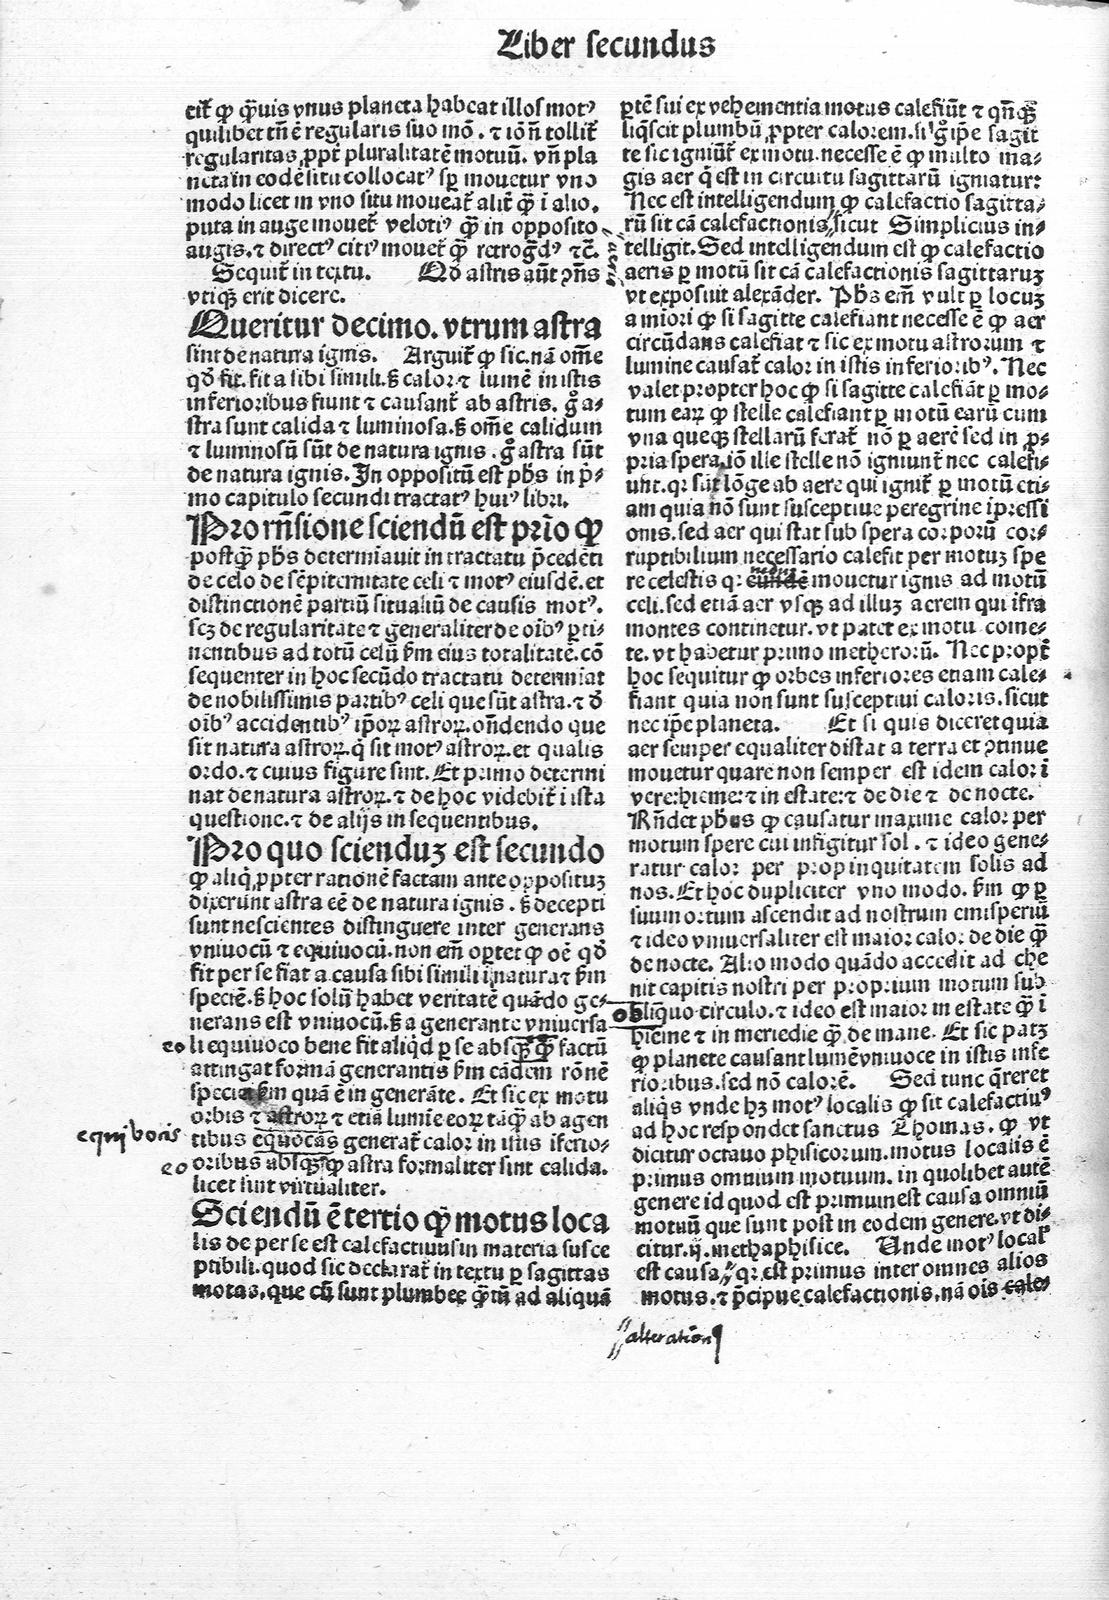 Liber secundus
cit̄ ꝙ q̄uis vnus planeta habeat illos motꝰ
quilibet tn̄ ē regularis suo mō. ⁊ iō n̄ tollit̄
regularitas ꝓpt̄ pluralitatē motuū. vn̄ pla
neta in eodē situ collocatꝰ sꝑ mouetur vno
modo licet in vno situ moueat̄ alit̄ q̄ꝫ ī alio.
puta in auge mouet̄ velotiꝰ q̄ꝫ in opposito
augis. ⁊ directꝰ citiꝰ mouet̄ q̄ꝫ retrogdꝰ ⁊c̄.
Sequit̄ in textu. Qd̄ astris aūt ꝯn̄s
vtiqꝫ erit dicere.
Queritur decimo. vtrum astra
sint de natura ignis. Arguit̄ ꝙ sic. nā om̄e
qd̄ fit. fit a sibi simili. s̄ꝫ calor ⁊ lumē in istis
inferioribus fiunt ⁊ causant̄ ab astris. g̊ a⸗
stra sunt calida ⁊ luminosa. s̄ꝫ om̄e calidum
⁊ luminosū sūt de natura ignis. g̊ astra sūt
de natura ignis. In oppositū est ph̄s in p̄i⸗
mo capitulo secundi tractatꝰ huiꝰ libri.
Pro rn̄sione sciendū est prīo ꝙ
postq̄ꝫ ph̄s determīauit in tractatu p̄cedēti
de celo de sēpiternitate celi ⁊ motꝰ eiusdē. et
distinctionē partiū situaliū de causis motꝰ.
scꝫ de regularitate ⁊ generaliter de oībꝰ ꝑti⸗
nentibus ad totū celū ẜm eius totalitatē. cō
sequenter in hoc secūdo tractatu determīat
de nobilissimis partibꝰ celi que sūt astra. ⁊ d̄
oībꝰ accidentibꝰ ip̄oꝝ astroꝝ. on̄dendo que
sit natura astroꝝ. q̄ sit motꝰ astroꝝ. et qualis
ordo. ⁊ cuius figure sint. Et primo determi
nat de natura astroꝝ. ⁊ de hoc videbit̄ ī ista
questione. ⁊ de alijs in sequentibus.
Pro quo scienduꝫ est secundo
ꝙ aliq̄ ꝓpter rationē factam ante oppositūꝫ
dixerunt astra eē de natura ignis. s̄ꝫ decepti
sunt nescientes distinguere inter generans
vniuocū ⁊ equiuocū. non em̄ oꝑtet ꝙ oē qd̄
fit per se fiat a causa sibi simili ī natura ⁊ ẜm
speciē. s̄ꝫ hoc solū habet veritatē quādo ge⸗
nerans est vniuocū. s̄ꝫ a generante vniuersa
eo li equiuoco bene fit aliq̄d ꝑ se absqꝫ q̄ꝫ factū
attingat formā generantis ẜm eādem rōnē
speciei ẜm quā ē in generāte. Et sic ex motu
orbis ⁊ astroꝝ ⁊ etiā lumīe eoꝝ tāq̄ꝫ ab agen
equiuocis tibus equocās generat̄ calor in istis īferio⸗
eo oribus absqꝫ ꝙ astra formaliter sint calida.
licet sint virtualiter.
Sciendū ē tertio ꝙ motus loca
lis de per se est calefactiuus in materia susce
ptibili. quod sic declarat̄ in textu ꝑ sagittas
motas. que cū sunt plumbee q̄tū ad aliquā
ꝑtē sui ex vehementia motus calefiūt ⁊ qn̄qꝫ
liq̄scit plumbū ꝓpter calorem. si g̊ ip̄e sagit
te sic igniūt̄ ex motu. necesse ē ꝙ multo ma⸗
gis aer q̄ est in circuitu sagittarū igniatur:
Nec est intelligendum ꝙ calefactio sagitta⸗
rū sit cā calefactionis sicut Simplicius in⸗
telligit. Sed intelligendum est ꝙ calefactio
aeris ꝑ motū sit cā calefactionis sagittaruꝫ
vt exposuit alexāder. Ph̄s em̄ vult ꝑ locuꝫ
a miori ꝙ si sagitte calefiant necesse ē ꝙ aer
circūdans calefiat ⁊ sic ex motu astrorum ⁊
lumine causat̄ calor in istis inferioribꝰ. Nec
valet propter hoc ꝙ si sagitte calefiāt ꝑ mo⸗
tum eaꝝ ꝙ stelle calefiant ꝑ motū earū cum
vna queqꝫ stellarū ferat̄ nō ꝑ aerē sed in ꝓ⸗
pria spera. iō ille stelle nō igniunt̄ nec calefi⸗
unt. qꝛ sūt lōge ab aere qui ignit̄ ꝑ motū eti⸗
am quia nō sunt susceptiue peregrine īp̄ressi
onis. sed aer qui stat sub spera corporū cor⸗
ruptibilium necessario calefit per motuꝫ spe
neduꝫ
re celestis qꝛ eundē mouetur ignis ad motū
celi. sed etiā aer vsqꝫ ad illuꝫ aerem qui īfra
montes continetur. vt patet ex motu come⸗
te. vt habetur primo metheroꝝ. Nec propt̄
hoc sequitur ꝙ orbes inferiores etiam cale⸗
fiant quia non sunt susceptiui caloris. sicut
nec ip̄e planeta. Et si quis diceret quia
aer semper equaliter distat a terra et ꝯtinue
mouetur quare non semper est idem calor ī
vere: hieme: ⁊ in estate: ⁊ de die ⁊ de nocte.
Rn̄det ph̄us ꝙ causatur maxime calor per
motum spere cui infigitur sol. ⁊ ideo gene⸗
ratur calor per propinquitatem solis ad
nos. Et hoc dupliciter vno modo. ẜm ꝙ ꝑ
suum ortum ascendit ad nostrum emisperiū
⁊ ideo vniuersaliter est maior calor de die q̄ꝫ
de nocte. Alio modo quādo accedit ad che
nit capitis nostri per proprium motum sub
ob liquo circulo. ⁊ ideo est maior in estate q̄ꝫ ī
hieme ⁊ in meridie q̄ꝫ de mane. Et sic patꝫ
ꝙ planete causant lumē vniuoce in istis infe
rioribus. sed nō calorē. Sed tunc q̄reret
aliq̄s vnde hꝫ motꝰ localis ꝙ sit calefactiuꝰ
ad hoc respondet sanctus Thomas. ꝙ vt
dicitur octauo phisicorum. motus localis ē
primus omnium motuum. in quolibet autē
genere id quod est primum est causa omniū
motuū que sunt post in eodem genere. vt di⸗
citur. ij. methaphisice. Unde motꝰ local̄
est causa qꝛ est primus inter omnes alios
motus. ⁊ p̄cipue calefactionis. nā ois cale⸗
alteration